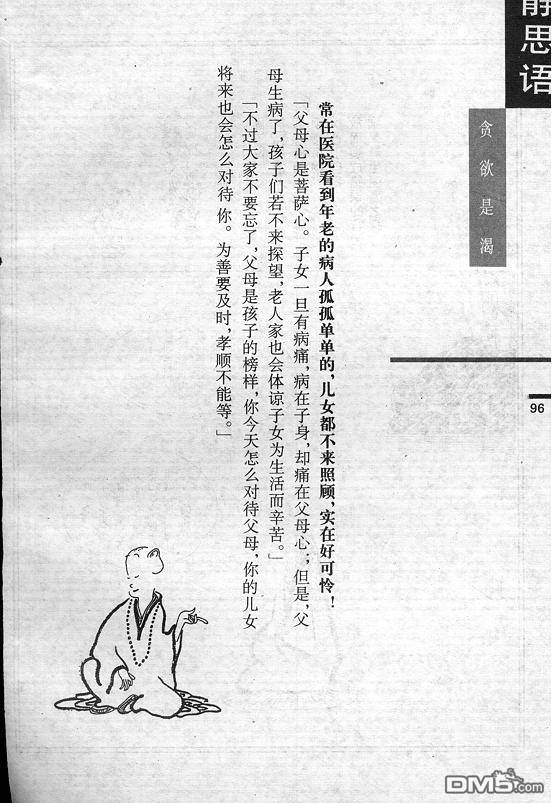 静思语
贪欲是渴
96
常在医院看到年老的病人孤孤单单的，儿女都不来照顾，实在好可怜！
「父母心是菩萨心。子女一旦有病痛，病在子身，却痛在父母心；但是，父
母生病了，孩子们若不来探望，老人家也会体谅子女为生活而辛苦。」
「不过大家不要忘了，父母是孩子的榜样，你今天怎么对待父母，你的儿女
将来也会怎么对待你。为善要及时，孝顺不能等。」
DM5.com